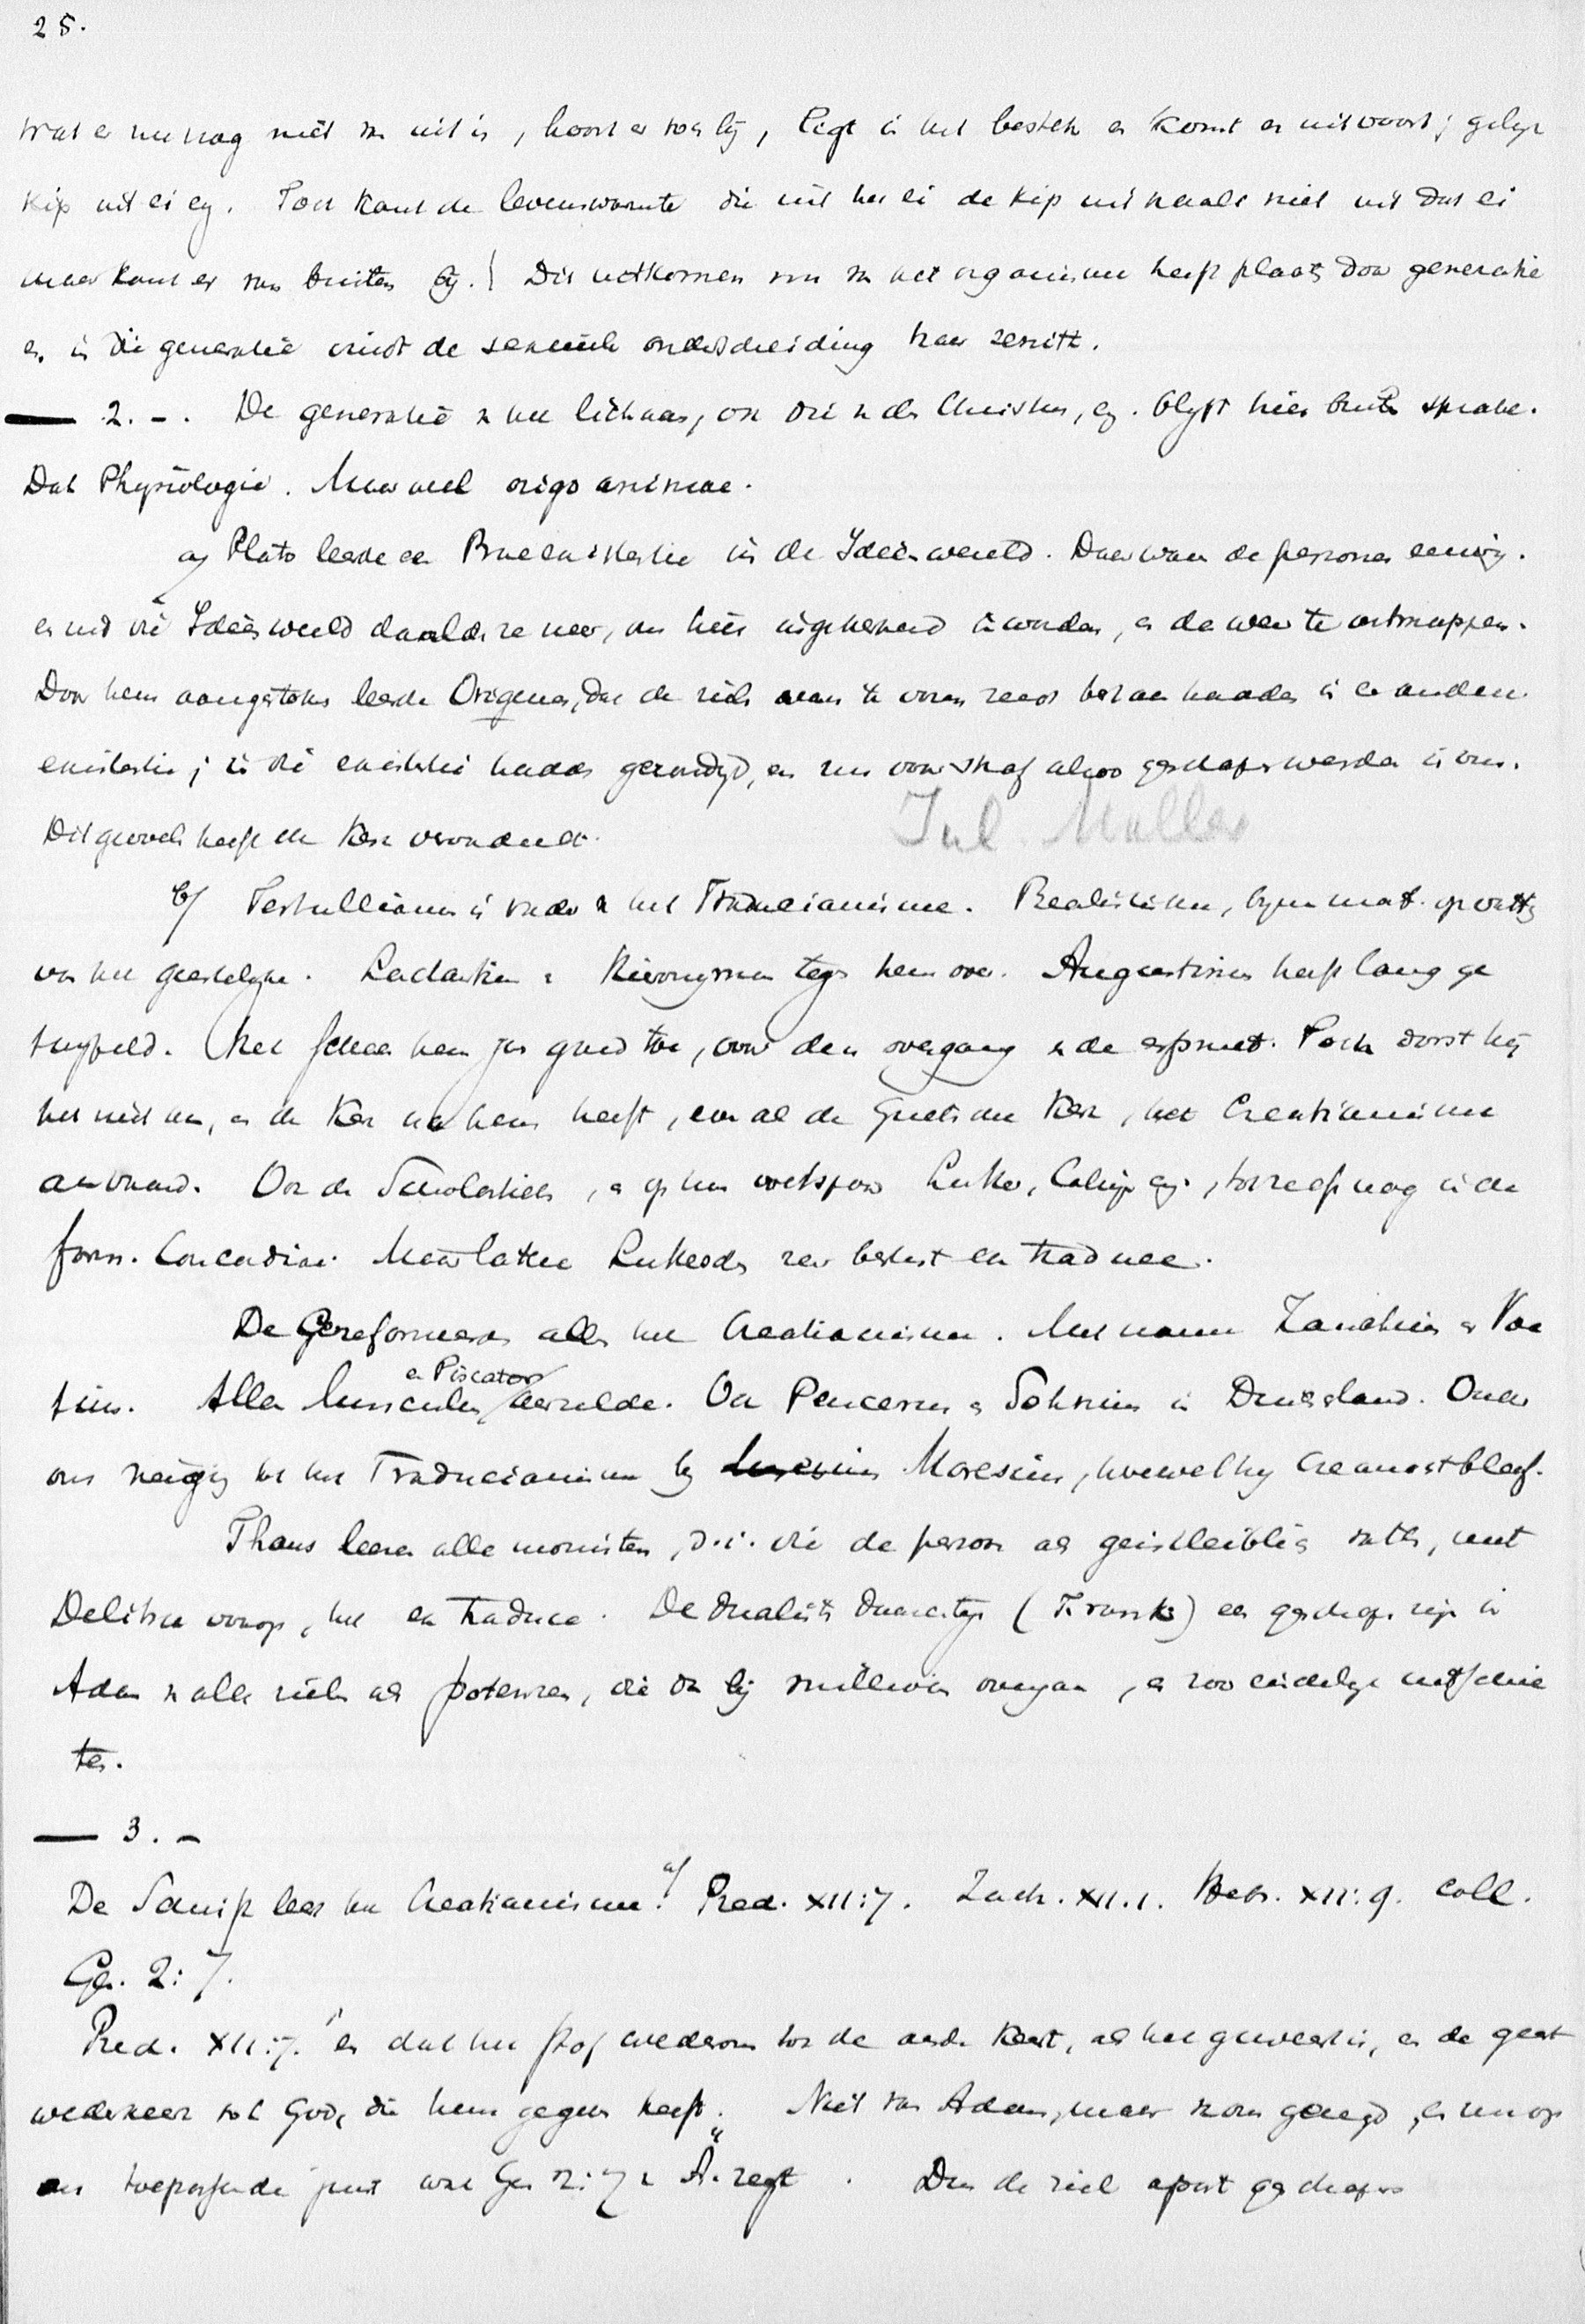 25.
wat er nu nog niet in uit is, hoort er toe bij, ligt in het bestek en komt er uit voort; gelijk
kip uit ei ez. Toch komt de levenswarmte die uit het ei de kip uithaalt niet uit dat ei
maar komt er van buiten bij. Dit uitkomen van in het organisme heeft plaats door generatie
en in die generatie vindt de sexueele onderscheiding haar
2. -. De generatie v het lichaam, ook die v den Christus, ez. blyft hier buiten sprake.
Dat Physiologie. Maar wel origo animae.
a/ Plato leerde een Praeexistentie in de Ideënwereld. Daar waren de personen eeuwig.
en uit die Ideënwereld daalden ze neer, om hier ingekerkerd te worden, en daar weer te ontsnappen.
Door hem aangestoken leerde Origenes, dat de ziel van te voren reeds bestaan hadden in een andere
existentie; in die existentie hadden gezondigd, en nu voor straf alzoo geschapen werden in ons.
Dit gevoel heeft de Kerk veroordeeld.
Jul. Muller
b/ Tertullianus is vader v het Traducianisme. Realisme, by een mat. opvatting
van het geestelyke. Lactantius en Hieronymus tegen hem over. Augustinus heeft lang ge
twyfeld. Het scheen hem zeer goed toe, voor den overgang v de erfsmet. Toch dorst hij
het niet aan, en de Kerk na hem heeft, vooral de Grieksche Kerk, het Creatianisme
aanvaard. Ook de Scholastiek, en op hun voetspoor Luther, Calvijn ez., tot zelfs nog in de
form. Concordiae. Maar latere Lutherschen zeer beslist ex traduce.
De Gereformeerden allen het Creatianisme. Met name Zanchius en Voe
tius. Alleen Musculus en Piscator aarzelde. Ook Peucerus en Sohnius in Duitsland. Onder
ons neiging tot het Traducianisme by Maresius, hoewel hy Creatianist bleef.
Thans leeren alle monisten, d.i. die de persoon als geistleiblich vatten, met
Delitzsch voorop, het ex traduce. De dualisten daarentegen (Frank) een geschapen zijn in
Adam v alle zielen als potenzen, die dan bij millioenen overgaan, en zoo eindelyk uitschie
ten.
3. -
De Schrift leert het Creatianisme. a/ Pred. XII:7. Zach. XII.1. Hebr. XII:9. coll.
Gen. 2:7.
Pred. XII:7. "en dat het stof wederom tot de aarde keert, als het geweest is, en de geest
wederkeer tot God, die hem gegeven heeft." Niet van Adam, maar gezegd, en nu op
ons toepassende juist wat Gen 2:7 v A. zegt. Dus de ziel apart geschapen